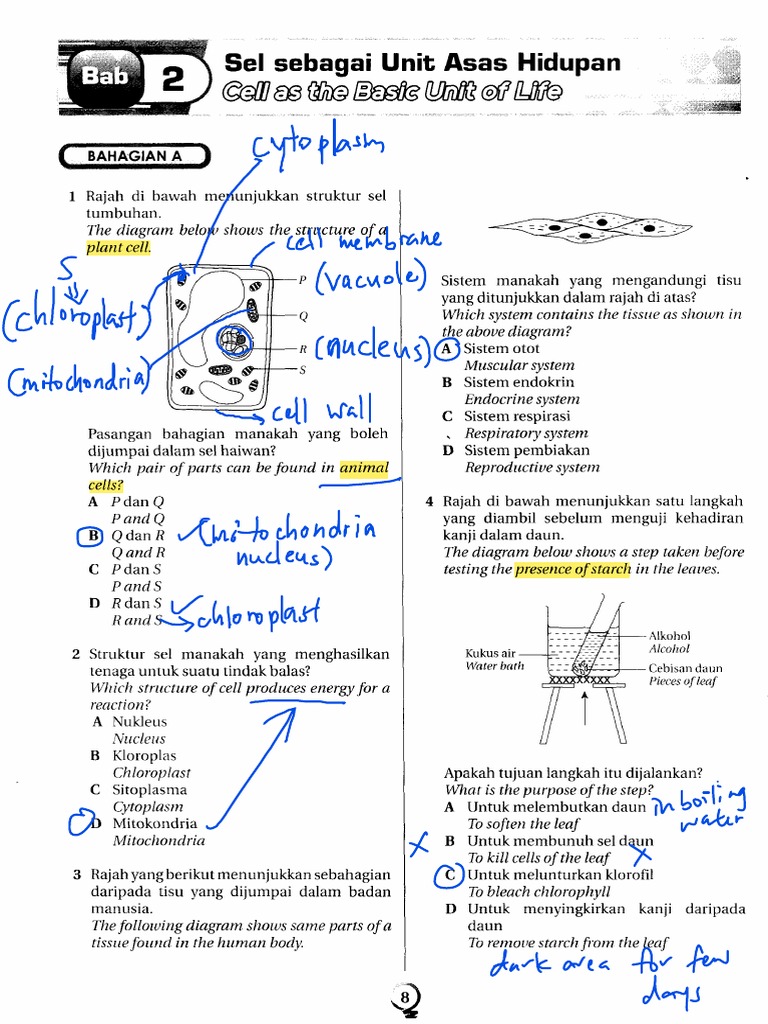 Bab 2
Sel sebagai Unit Asas Hidupan
Cell as the Basic Unit of Life
BAHAGIAN A
cytoplasm
1 Rajah di bawah menunjukkan struktur sel
tumbuhan.
The diagram below shows the structure of a
plant cell.
cell membrane
S
(chloroplast)
(mitochondria)
P
(vacuole)
Q
R
(nucleus)
S
cell wall
Pasangan bahagian manakah yang boleh
dijumpai dalam sel haiwan?
Which pair of parts can be found in animal
cells?
A P dan Q
P and Q
B Q dan R
Q and R
(mitochondria
nucleus)
C P dan S
P and S
D R dan S
R and S
chloroplast
2 Struktur sel manakah yang menghasilkan
tenaga untuk suatu tindak balas?
Which structure of cell produces energy for a
reaction?
A Nukleus
Nucleus
B Kloroplas
Chloroplast
C Sitoplasma
Cytoplasm
D Mitokondria
Mitochondria
3 Rajah yang berikut menunjukkan sebahagian
daripada tisu yang dijumpai dalam badan
manusia.
The following diagram shows same parts of a
tissue found in the human body.
Sistem manakah yang mengandungi tisu
yang ditunjukkan dalam rajah di atas?
Which system contains the tissue as shown in
the above diagram?
A Sistem otot
Muscular system
B Sistem endokrin
Endocrine system
C Sistem respirasi
Respiratory system
D Sistem pembiakan
Reproductive system
4 Rajah di bawah menunjukkan satu langkah
yang diambil sebelum menguji kehadiran
kanji dalam daun.
The diagram below shows a step taken before
testing the presence of starch in the leaves.
Alkohol
Alcohol
Kukus air
Water bath
Cebisan daun
Pieces of leaf
Apakah tujuan langkah itu dijalankan?
What is the purpose of the step?
A Untuk melembutkan daun
To soften the leaf
in boiling
water
B Untuk membunuh sel daun
To kill cells of the leaf
C Untuk melunturkan klorofil
To bleach chlorophyll
D Untuk menyingkirkan kanji daripada
daun
To remove starch from the leaf
dark area for few
days
8